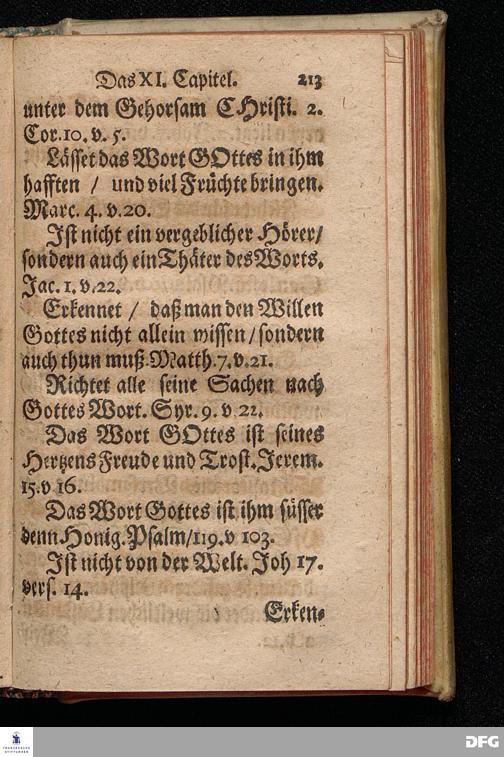 Das XI. Capitel. 213
unter dem Gehorsam CHristi. 2.
Cor. 10. v. 5.
Lässet das Wort GOttes in ihm
hafften / und viel Früchte bringen.
Marc. 4. v. 20.
Ist nicht ein vergeblicher Hörer/
sondern auch ein Thäter des Worts.
Jac. 1. v. 22.
Erkennet / daß man den Willen
Gottes nicht allein wissen / sondern
auch thun muß. Matth. 7. v. 21.
Richtet alle seine Sachen nach
Gottes Wort. Syr. 9. v. 22.
Das Wort GOttes ist seines
Hertzens Freude und Trost. Jerem.
15. v 16.
Das Wort Gottes ist ihm süsser
denn Honig. Psalm/119. v 103.
Ist nicht von der Welt. Joh 17.
vers. 14.
Erken-
FRANCKESCHE
STIFTUNGEN
DFG